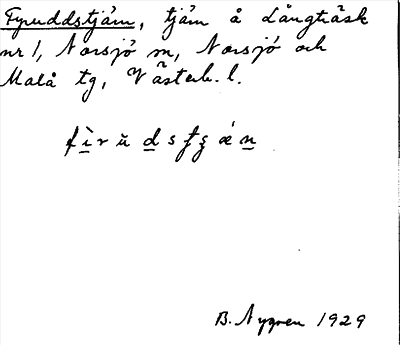 Fyruddstjärn, tjärn å Långträsk
nr 1, Norsjö sn, Norsjö och
Malå tg, Västerb. l.
B. Nygren 1929